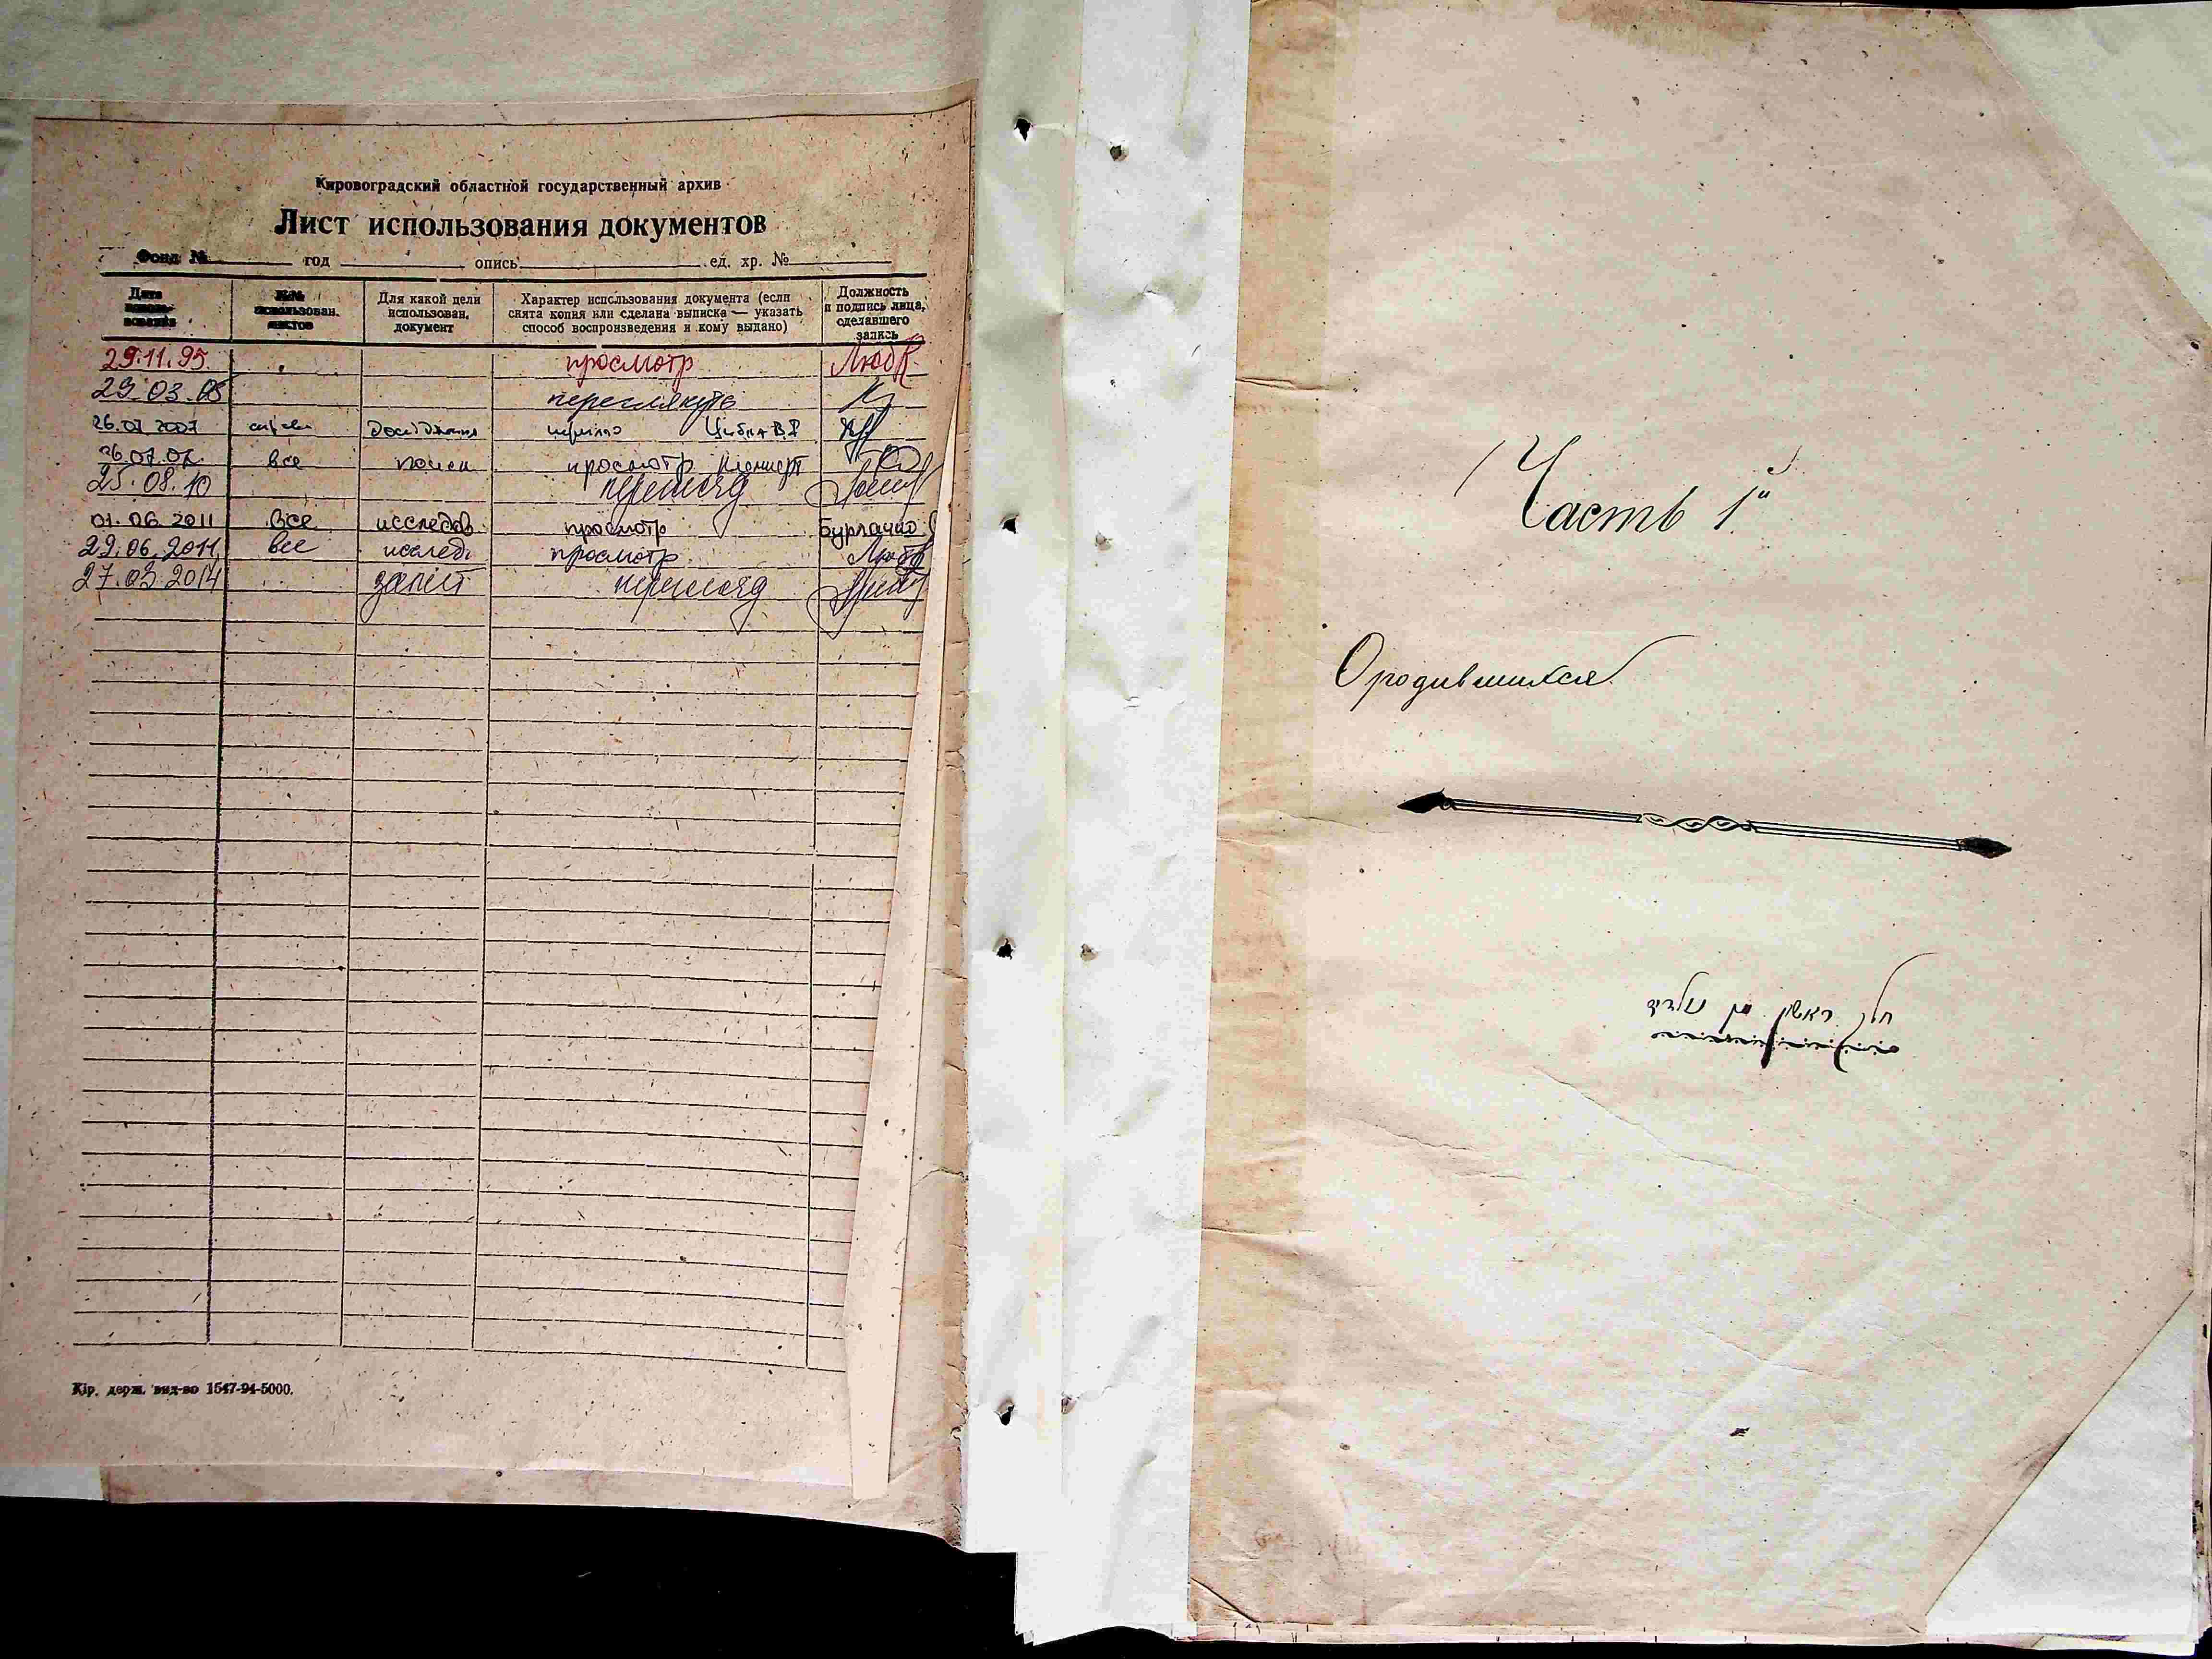 Кировоградский областной государственный архив
Лист использования документов
Фонд № год опись ед. хр. №
Дата использования
№№ использован. листов
Для какой цели использован. документ
Характер использования документа (если снята копия или сделана выписка — указать способ воспроизведения и кому выдано)
Должность и подпись лица, сделавшего запись
29.11.95 просмотр
29.03.05 переглянуто
26.07 2007
26.07.07. все поиск просмотр
25.08.10 перегляд
01.06 2011 все исследов. просмотр Бурлачко
29.06.2011 все исслед. просмотр
27.03.2014 запит перегляд
Кір. держ. вид-во 1547-94-5000.
Часть 1я
О родившихся
חלק ראשון מן נולדים